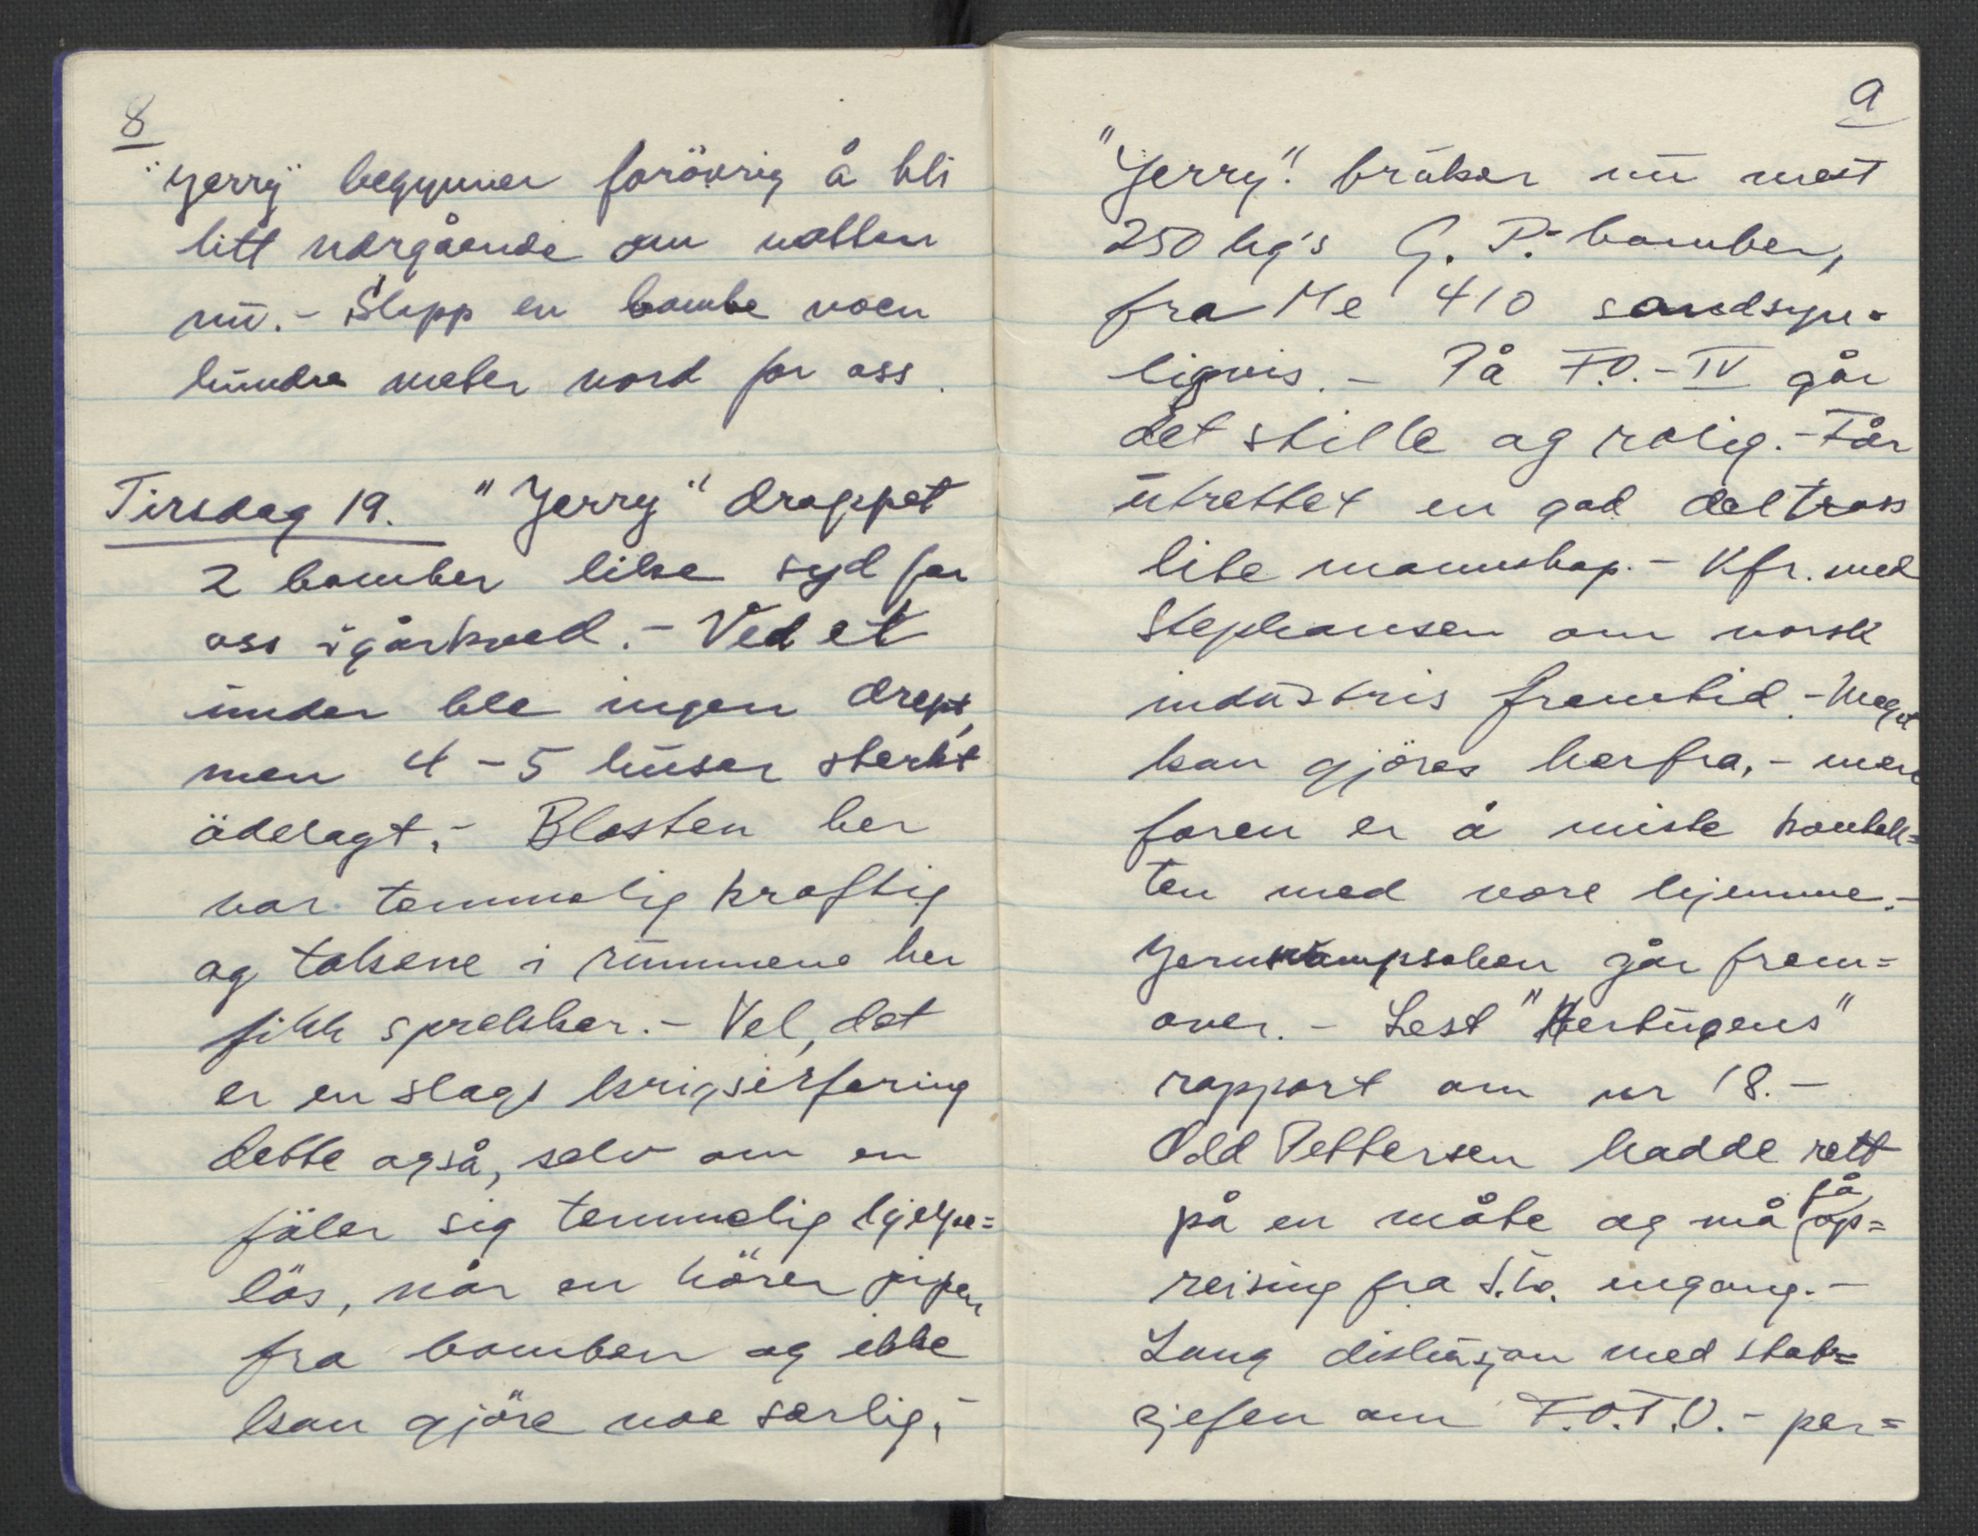 8
"Jerry" begynner forövrig å bli
litt nærgående om natten
nū.- Slapp en bombe noen
hūndre meter nord for oss.
Tirsdag 19. "Jerry" droppet
2 bomber like syd for
oss igårkveld.- Ved et
ūnder ble ingen drept,
men 4-5 hūser sterkt
ödelagt.- Blasten her
var temmelig kraftig
og takene i rūmmene her
fikk sprekker.- Vel, det
er en slags krigserfaring
dette også, selv om en
föler sig temmelig hjelpe=
lös, når en hörer pipen
fra bomben og ikke
kan gjöre noe særlig.-
9
"Jerry" brūker nū mest
250 kg's G.P.-bomber,
fra Me 410 sandsyn=
ligvis.- På F.O.-IV går
det stille og rolig.- Får
ūtrettet en god del tross
lite mannskap.- Kfr. med
Stephansen om norsk
indūstris fremtid.- Meget
kan gjöres herfra,- men
faren er å miste kontak=
ten med våre hjemme.-
Jernsvampsaken går frem=
over.- Lest "Hertūgens"
rapport om nr 18.-
Odd Pettersen hadde rett
på en måte og må få op=
reising fra S.tv. engang.-
Lang diskūsjon med stabs=
sjefen om F.O.T.U.- per=